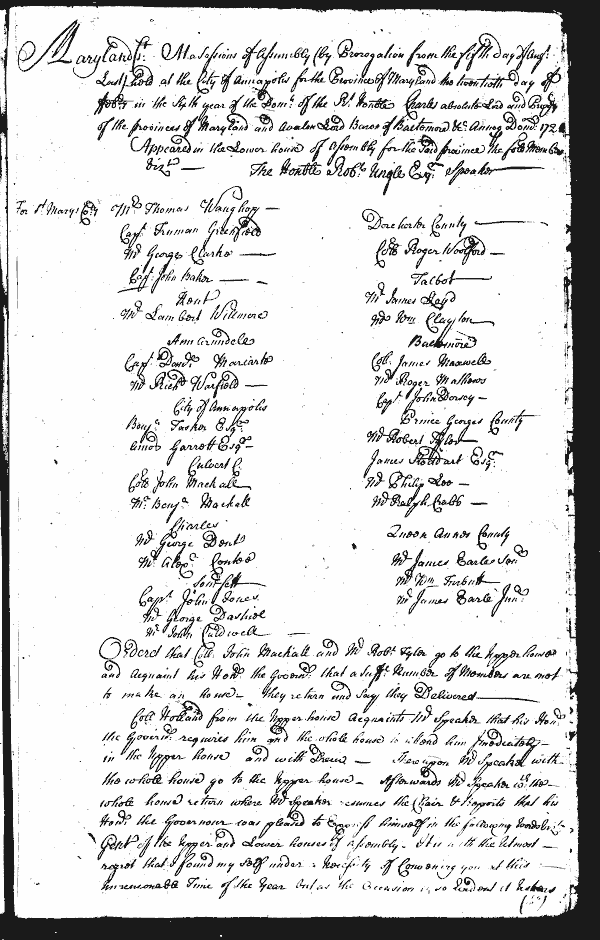 Maryland Sst. At a Sessions of Assembly (by Prorogation from the fifth day of Augt.
Last) held at the City of Annapolis for the Province of Maryland the twentieth day of
in the Sixth year of the Domn. of the Rt. Honble Charles absolute Lord and Propry
of the provinces of Maryland and Avalon Lord Baron of Baltemore &c. Annoq Domi. 172
Appeared in the Lower house of Assembly for the said province the follo Members
Vizt. — The Honble Robt. Ungle Esqr. Speaker —
For St. Marys Coty
Mr. Thomas Waughop —
Capt. Truman Greenfield
Mr. George Clarke —
Capt. John Baker —
Kent
Mr. Lambert Willmore
Ann Arundele
Capt. Danl. Mariarte
Mr. Richd. Warfield —
City of Annapolis
Benj. Tasker Esqr.
Amos Garrett Esqr.
Calvert C.
Coll. John Mackall
Mr. Benja. Mackall
Charles
Mr. George Dent
Mr. Alexr. Contee
Somersett
Capt. John Jones
Mr. George Dashiel
Mr. John Caldwell —
Dorchester County —
Coll. Roger Woolford —
Talbot
Mr. James Loyd
Mr. Wm. Clayton
Baltemore
Col. James Maxwell
Mr. Roger Mathews
Capt. John Dorsey —
Prince Georges County
Mr. Robert Tyler —
James Stoddart Esqr.
Mr. Philip Lee —
Mr. Ralph Crabb —
Queen Annes County
Mr. James Earle Senr.
Mr. Wm. Turbutt
Mr. James Earle Junr.
Ordered that Coll. John Mackall and Mr. Robt. Tyler go to the Upper house
and Acquaint his Honr. the Governr. that a suft. Number of Members are met
to make an house — They return and say they Delivered
Coll. Holland from the Upper house Acquaints Mr. Speaker that his Honr.
the Governr. requires him and the whole house to attend him Imediately —
in the Upper house and with Drew — Hereupon Mr. Speaker with
the whole house go to the Upper house — Afterwards Mr. Speaker wth. the
whole house return where Mr. Speaker resumes the Chair & Reports that his
Honr. the Governour was pleased to Express himself in the following words
Gent. of the Upper and Lower houses of Assembly. It is with the Utmost —
regret that I found my Self under a Necessity of Convening you at this —
unreasonable Time of the Year but as the Occasion is so